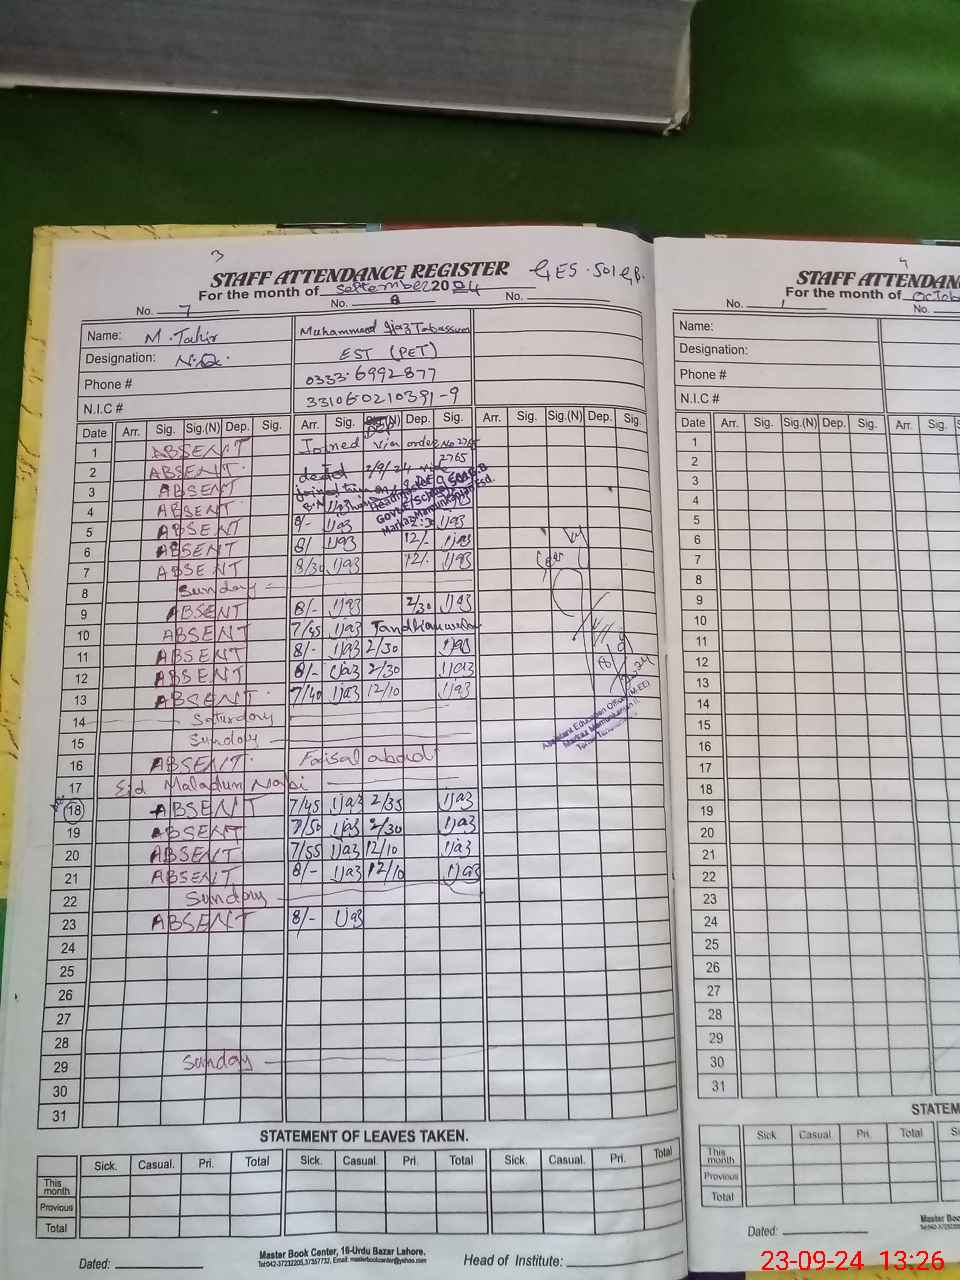 3
STAFF ATTENDANCE REGISTER GES. 501 G.B.
For the month of September 2024
No. 7 No. 8 No.
Name: M. Tahir Muhammad Ijaz Tabassum
Designation: N.Q. EST (PET)
Phone # 0333-6992877
N.I.C # 331060210391-9
Date Arr. Sig. Sig.(N) Dep. Sig. Arr. Sig. Dep. Sig. Arr. Sig. Sig.(N) Dep. Sig.
1 ABSENT Joined via order No 2765
2 ABSENT
3 ABSENT
4 ABSENT
5 ABSENT 8/- Ijaz Ijaz
6 ABSENT 8/- Ijaz 12/- Ijaz
7 ABSENT 8/30 Ijaz 12/- Ijaz
8 Sunday
9 ABSENT 8/- Ijaz 2/30 Ijaz
10 ABSENT 7/45 Ijaz
11 ABSENT 8/- Ijaz 2/30 Ijaz
12 ABSENT 8/- Ijaz 2/30 Ijaz
13 ABSENT 7/40 Ijaz 12/10 Ijaz
14 Saturday
15 Sunday
16 ABSENT Faisalabad
17 Eid Maladun Nabi
18 ABSENT 7/45 Ijaz 2/35 Ijaz
19 ABSENT 7/50 Ijaz 2/30 Ijaz
20 ABSENT 7/55 Ijaz 12/10 Ijaz
21 ABSENT 8/- Ijaz 12/10 Ijaz
22 Sunday
23 ABSENT 8/- Ijaz
24
25
26
27
28
29 Sunday
30
31
STATEMENT OF LEAVES TAKEN.
Sick. Casual. Pri. Total Sick. Casual. Pri. Total Sick. Casual. Pri. Total
This month
Previous
Total
Dated: Master Book Center, 16-Urdu Bazar Lahore. Head of Institute:
4
STAFF ATTENDAN
For the month of Octob
No. 1 No.
Name:
Designation:
Phone #
N.I.C #
Date Arr. Sig. Sig.(N) Dep. Sig. Arr. Sig.
1
2
3
4
5
6
7
8
9
10
11
12
13
14
15
16
17
18
19
20
21
22
23
24
25
26
27
28
29
30
31
STATEM
Sick. Casual. Pri. Total
This month
Previous
Total
Dated: Master Boo
23-09-24 13:26